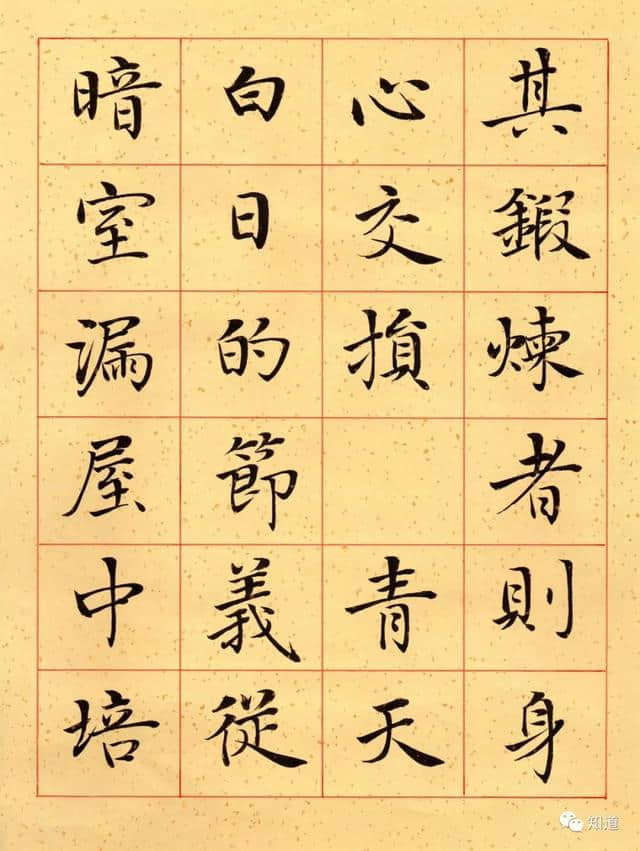 其鍛煉者則身
心交損 青天
白日的節義從
暗室漏屋中培
知道